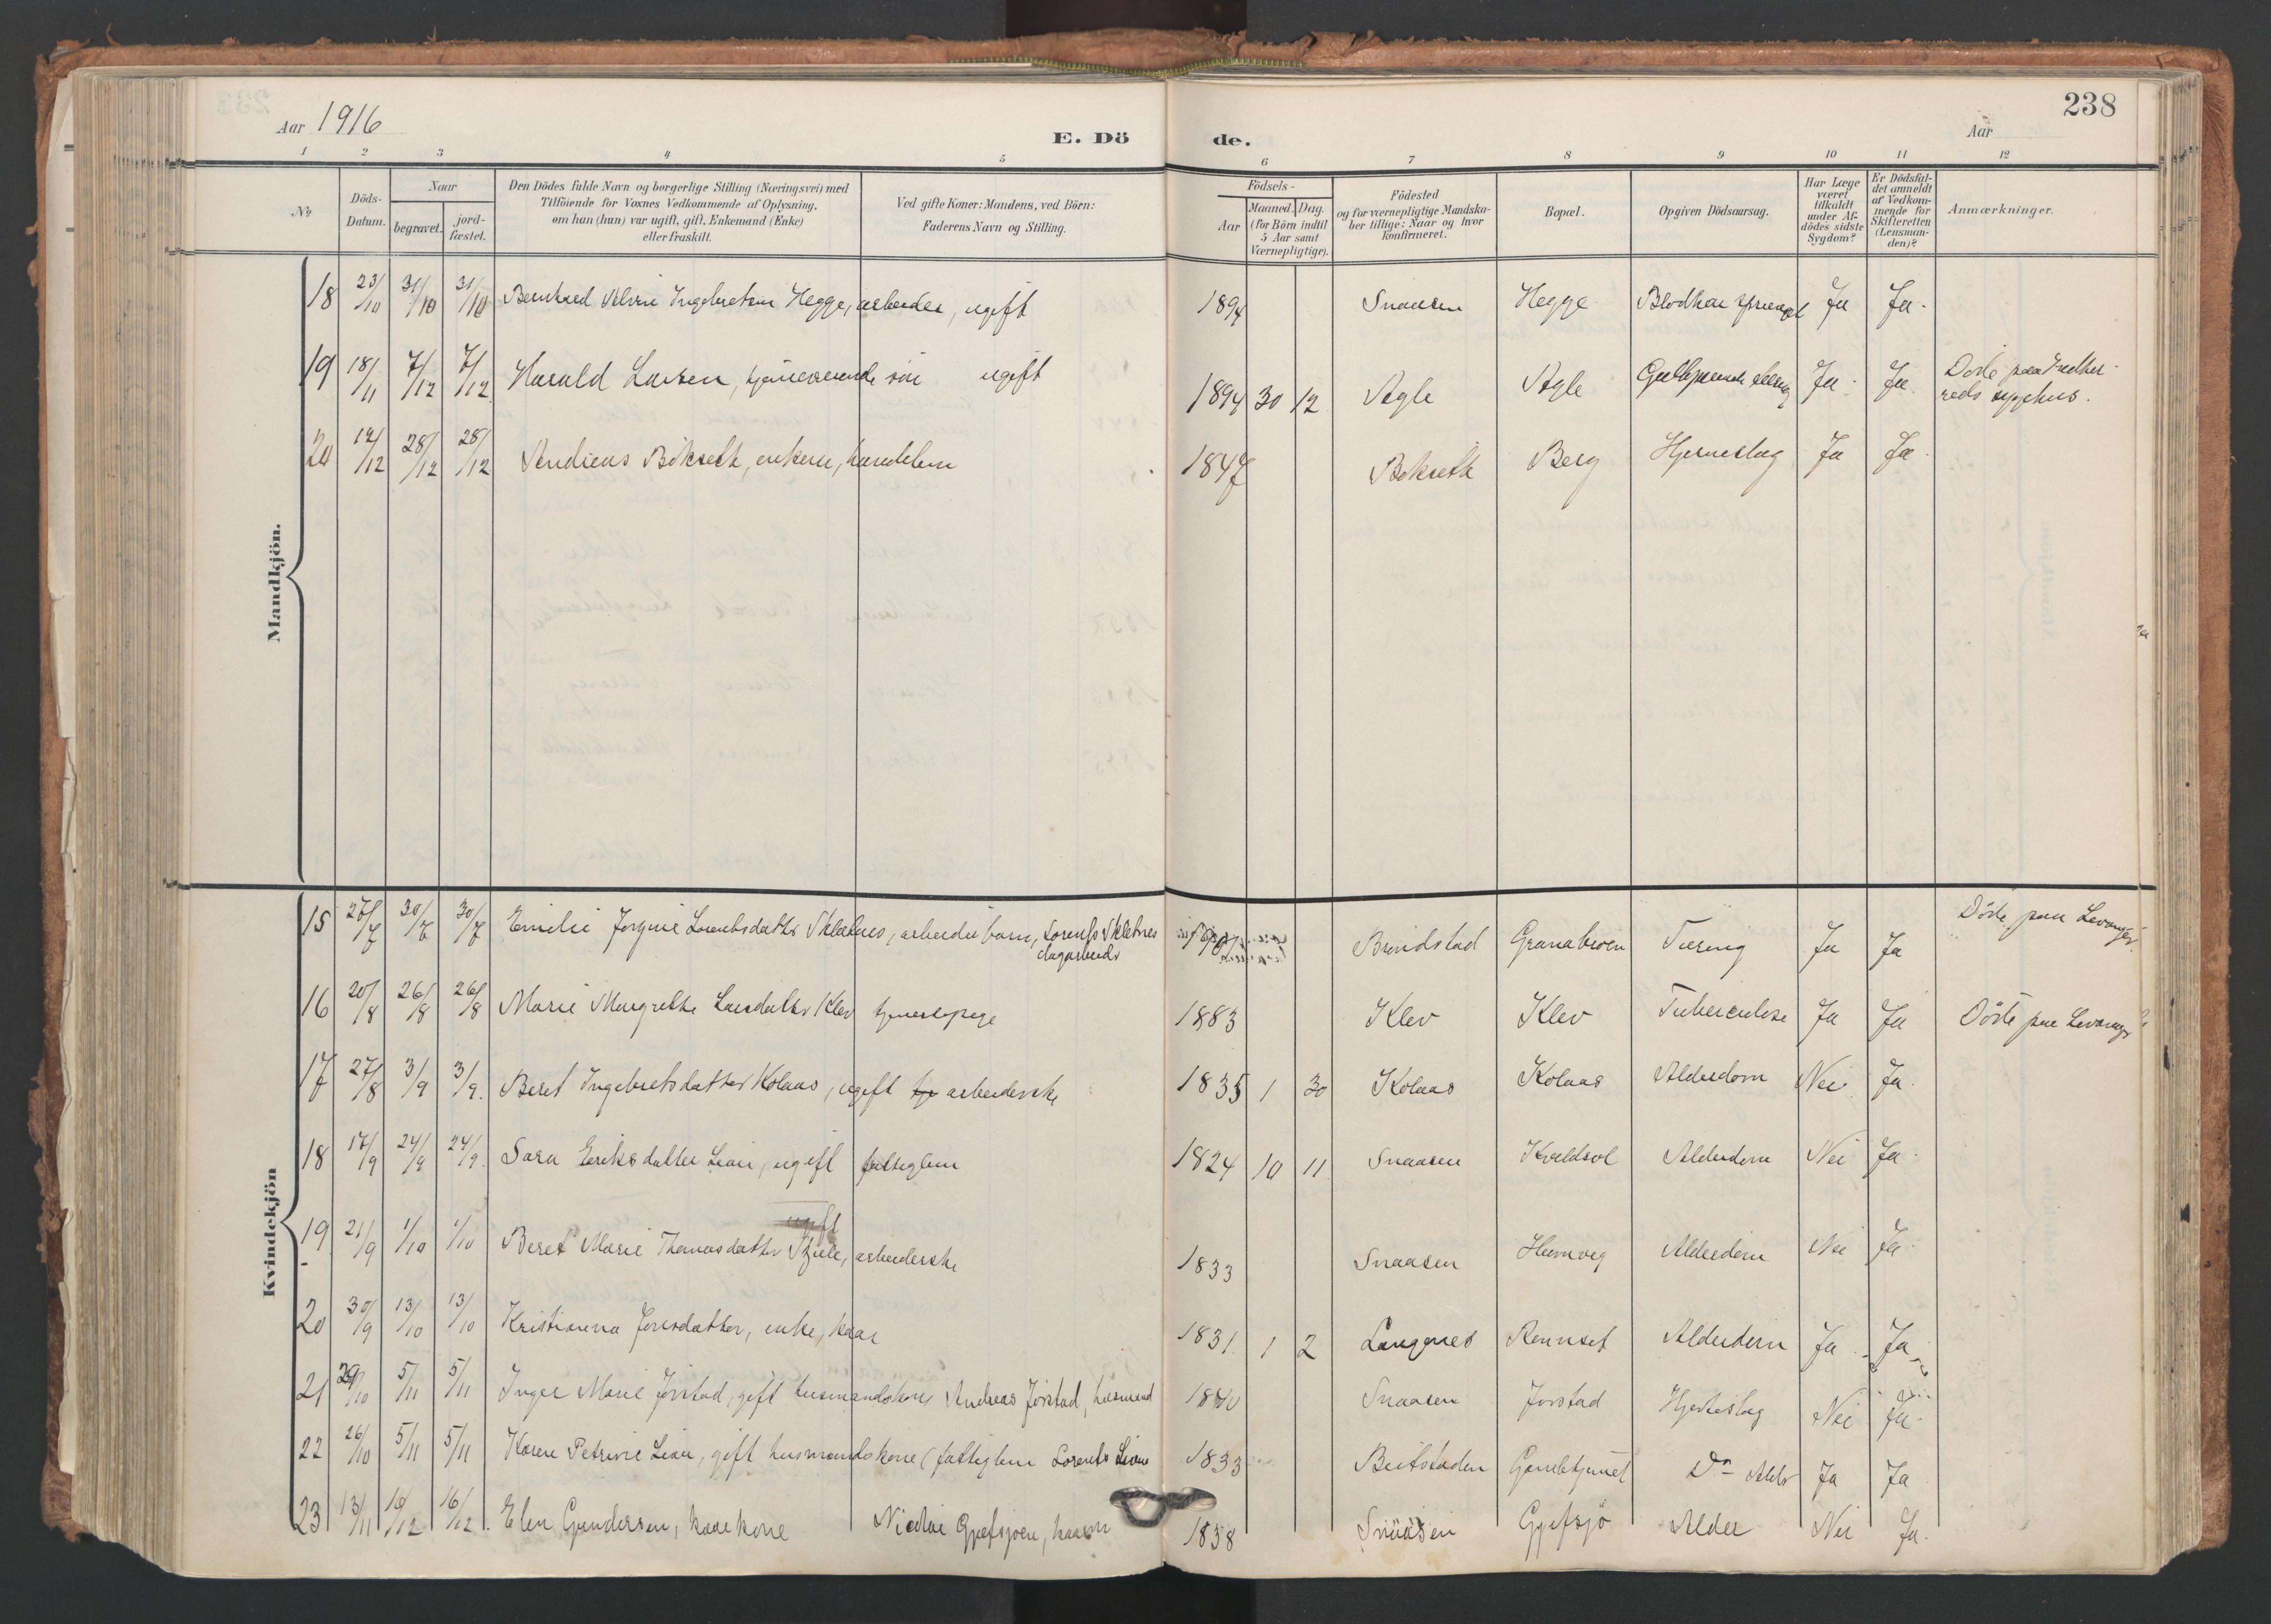 238
Aar 1916
E. Dö de.
Aar
1 2 3 4 5 6 7 8 9 10 11 12
No
Döds-Datum.
Naar
begravet.
jord-fæstet.
Den Dödes fulde Navn og borgerlige Stilling (Næringsvei) med
Tilföiende for Voxnes Vedkommende af Oplysning,
om han (hun) var ugift, gift, Enkemand (Enke)
eller fraskilt.
Ved gifte Koner: Mandens, ved Börn:
Faderens Navn og Stilling.
Födsels-
Aar
Maaned. Dag.
(for Börn indtil
5 Aar samt
Værnepligtige).
Födested
og for værnepligtige Mandska-
ber tillige: Naar og hvor
konfirmeret.
Bopæl.
Opgiven Dödsaarsag.
Har Læge
været
tilkaldt
under Af-
dödes sidste
Sygdom?
Er Dödsfal-
det anmeldt
af Vedkom-
mende for
Skifteretten
(Lensman-
den)?
Anmærkninger.
Mandkjön.
18 23/10 31/10 31/10 Bernhard Ingebretsen Hegge, arbeider, ugift 1894 Snaasen Hegge Ja Ja.
19 18/11 7/12 7/12 Harald Larsen, hjemmeværende søn ugift 1894 30 12 Agle Agle Ja Ja Døde paa
sygehus.
20 14/12 28/12 28/12 Andreas Bökseth, enkem, 1847 Bökseth Berg Hjerneslag Ja Ja
Kvindekjön
15 27/7 30/7 30/7 Emilie Jørgine Lorentsdatter Skletnes, arbeiderbarn, Lorents Skletnes
dagarbeider
Granabroen Tæring Ja Ja Døde paa Levanger
16 20/8 26/8 26/8 Marie Margrethe Larsdatter Klev tjenestepige 1883 Klev Klev Tuberculose Ja Ja Døde paa Levanger
17 27/8 3/9 3/9. Beret Ingebretsdatter Kolaas, ugift arbeiderske 1835 1 30 Kolaas Kolaas Alderdom Nei Ja.
18 17/9 24/9 24/9. Sara Eriksdatter Lian, ugift fattiglem 1824 10 11 Snaasen Kveldsol Alderdom Nei Ja.
ugift
19 21/9 1/10 1/10 Beret Marie Thomasdatter arbeiderske 1833 Snaasen Alderdom Nei Ja.
20 30/9 13/10 13/10 Kristianna Jonsdatter, enke, kaar 1831. 1 2 Langnes Rennset Alderdom Ja Ja
21 29/10 5/11 5/11 Inger Marie Jørstad, gift husmandskone Andreas Jørstad, husmand Snaasen Jørstad Hjerteslag Nei Ja.
22 26/10 5/11 5/11 Karen Petrine Lian, gift husmandskone (fattiglem Lorents Lian 1833 Beitstaden Do Alder Ja Ja
23 13/11 16/12 16/12. Elen Gundersen, kaarkone Nicolai Gjefsjøen, kaarm 1838 Snaasen Gjefsjø Alder Nei Ja.